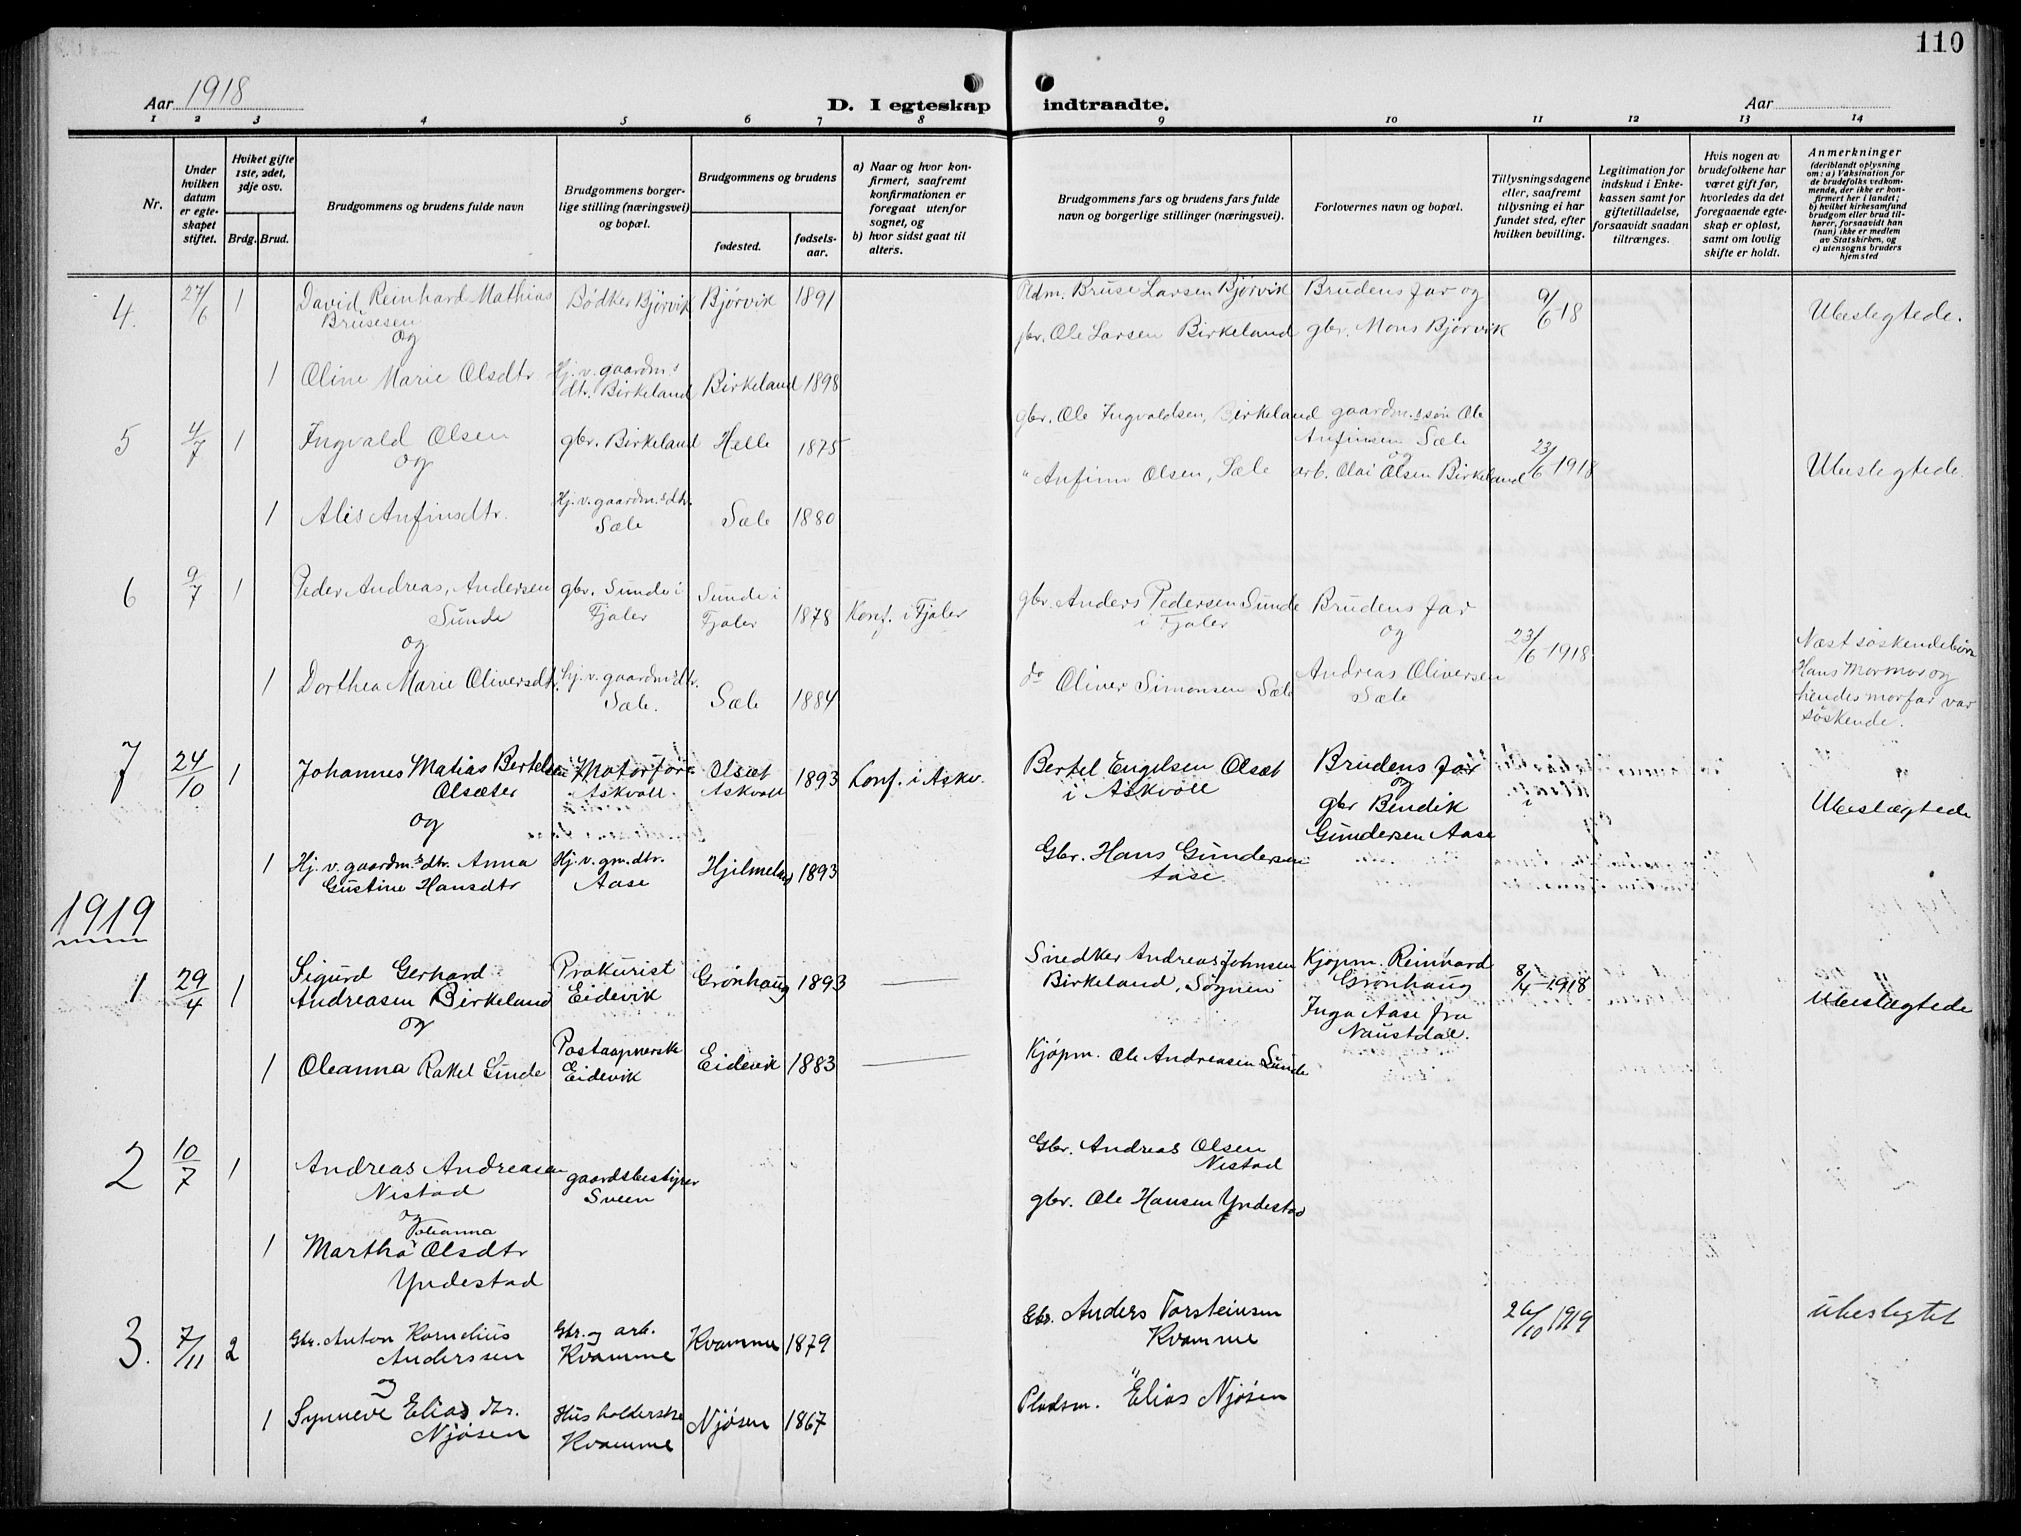 110
Aar 1918
D. I egteskap indtraadte.
Aar
1 2 3 4 5 6 7 8 9 10 11 12 13 14
Nr.
Under hvilken datum er egteskapet stiftet.
Hviket gifte 1ste, 2det, 3dje osv.
Brdg. Brud.
Brudgommens og brudens fulde navn
Brudgommens borgerlige stilling (næringsvei) og bopæl.
Brudgommens og brudens
fødested.
fødselsaar.
a) Naar og hvor konfirmert, saafremt konfirmationen er foregaat utenfor sognet, og
b) hvor sidst gaat til alters.
Brudgommens fars og brudens fars fulde navn og borgerlige stillinger (næringsvei).
Forlovernes navn og bopæl.
Tillysningsdagene eller, saafremt tillysning ei har fundet sted, efter hvilken bevilling.
Legitimation for indskud i Enkekassen samt for giftetilladelse, forsaavidt saadan tiltrænges.
Hvis nogen av brudefolkene har været gift før, hvorledes da det foregaaende egteskap er opløst, samt om lovlig skifte er holdt.
Anmerkninger
(deriblandt oplysning om: a) Vaksination for de brudefolks vedkommende, der ikke er konfirmert her i landet; b) hvilket kirkesamfund brudgom eller brud tilhører, forsaavidt han (hun) ikke er medlem av Statskirken, og c) utensogns bruders hjemsted
4. 27/6 1 David Reinhard Mathias Bødker Bjørvik Bjørvik 1891 Pldm. Bruse Larsen Bjørvik Brudens far og 9/6 18 Ubeslegtede.
Brusesen
og gbr. Ole Larsen Birkeland gbr. Mons Bjørvik
1 Oline Marie Olsdtr. Hj. v. gaardm.s dtr. Birkeland Birkeland 1898
5 4/7 1 Ingvald Olsen gbr. Birkeland Helle 1875 gbr. Ole Ingvaldsen, Birkeland gaardm.s søn Ole Anfinsen Sæle 23/6 1918 Ubeslegtede.
og " Anfinn Olsen, Sæle og arb. Olai Olsen Birkeland
1 Alis Anfinsdtr. Hj. v. gaardm.s dtr. Sæle Sæle 1880
6 9/7 1 Peder Andreas, Andersen gbr. Sunde i Fjaler Sunde i Fjaler 1878 Konf. i Fjaler gbr. Anders Pedersen Sunde i Fjaler Brudens far 23/6 1918
Sunde
og og
1 Dorthea Marie Oliversdtr. Hj. v. gaardm.s dtr. Sæle. Sæle 1884 do Oliver Simonsen Sæle Andreas Oliversen Sæle
Næstsøskendebørn
Hans mormor og
hendes morfar var
søskende.
7 24/10 1 Johannes Matias Bertelsen Askvoll. Olsæt Askvoll 1893 Konf. i Askv. Bertel Engelsen Olsæt i Askvoll Brudens far Ubeslægtede
Olsæter
og og gbr Bendik Gundersen Aase
1 Hj. v. gaardm.s dtr. Anna Gustine Hansdtr Hj. v. gm. dtr. Aase Hjelmeland 1893 Gbr. Hans Gundersen Aase.
1919
1 29/4 1 Sigurd Gerhard Andreasen Birkeland Prokurist Eidevik Grønhaug 1893 — Snedker Andreas Johnsen Birkeland, Søgnen Kjøpm. Reinhard Grønhaug 8/4 1918 Ubeslægtede
og Inga Aase fra Naustdal.
1 Oleanna Rakel Sunde Postaapnerske Eidevik Eidevik 1883 — Kjøpm. Ole Andreasen Sunde
2 10/7 1 Andreas Andreasen Nistad gaardsbestyrer Sveen Gbr. Andreas Olsen Nistad
og gbr. Ole Hansen Yndestad
Johanna
1 Martha Olsdtr
Yndestad
3. 7/11 2 Gbr. Anton Kornelius Anderssen Gbr. og arb. Kvamme Kvamme 1879 Gbr. Anders Torsteinsen Kvamme 26/10 1919 ubeslegtet
og
1 Synneve Elias dtr. Njøsen Husholderske Kvamme Njøsen 1867 Pladsm. Elias Njøsen